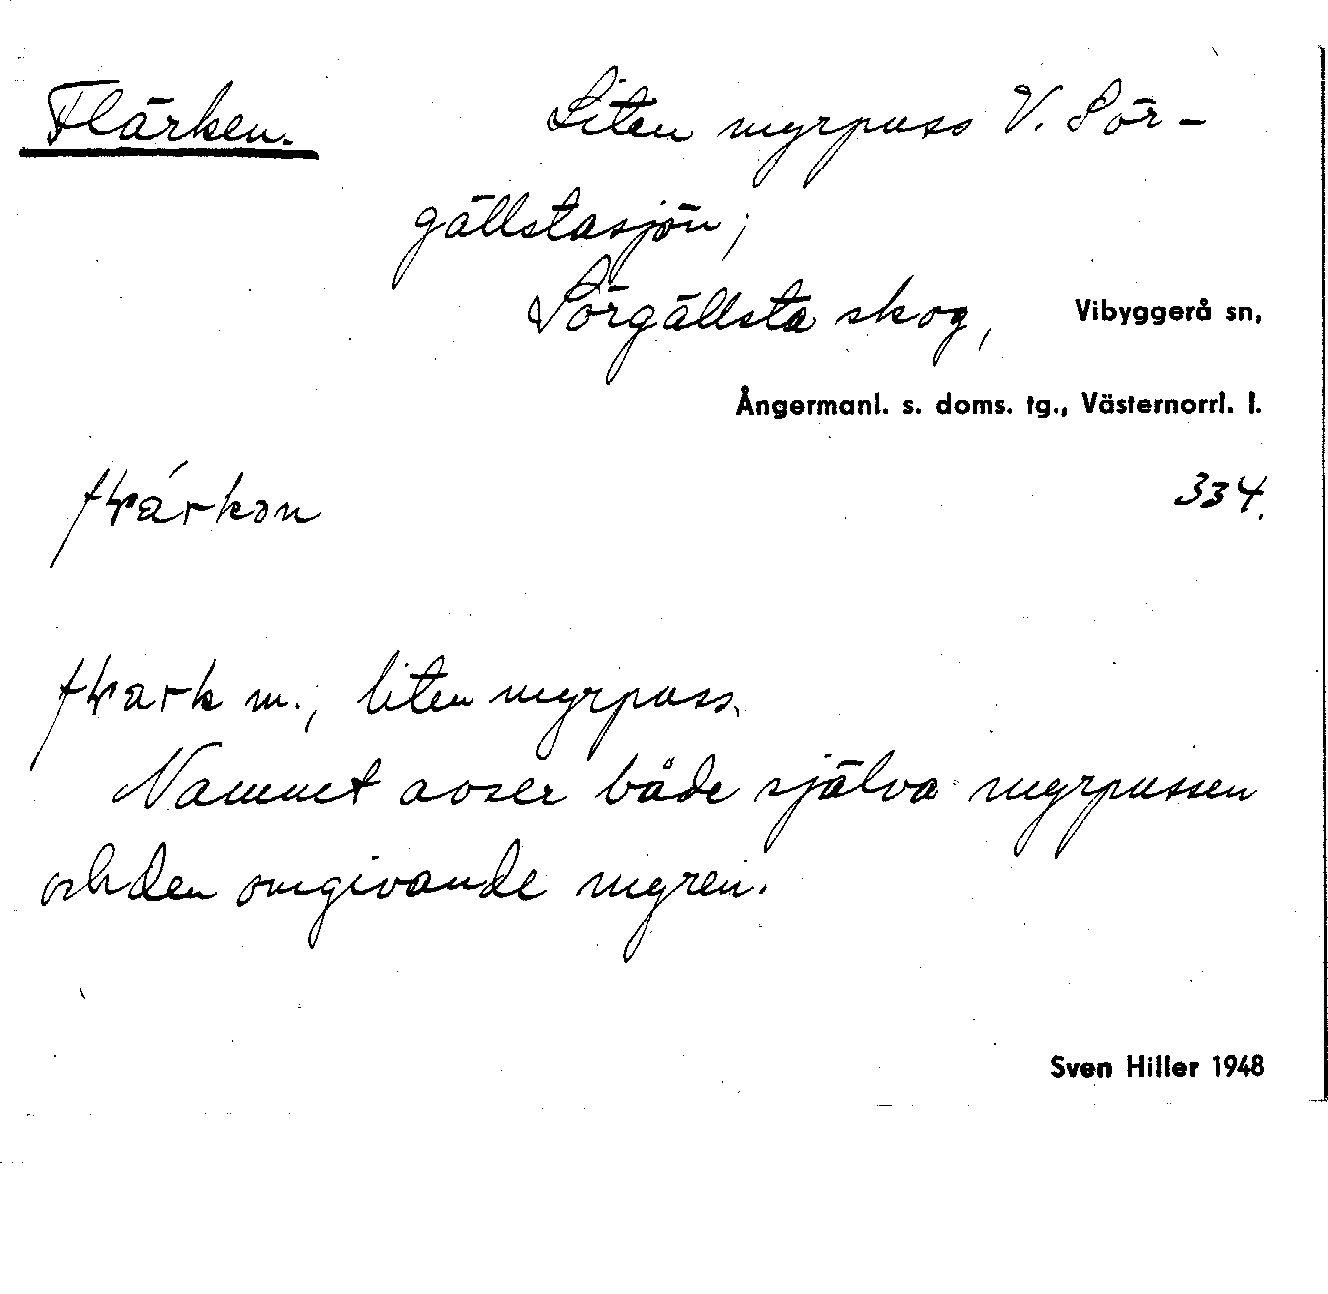 Flärken.
Liten myrpuss V. Sör-
gällstasjön;
Sörgällsta skog, Vibyggerå sn,
Ångermanl. s. doms. tg., Västernorrl. l.
334.
m., liten myrpuss.
Namnet avser både själva myrpussen
och den omgivande myren.
Sven Hiller 1948